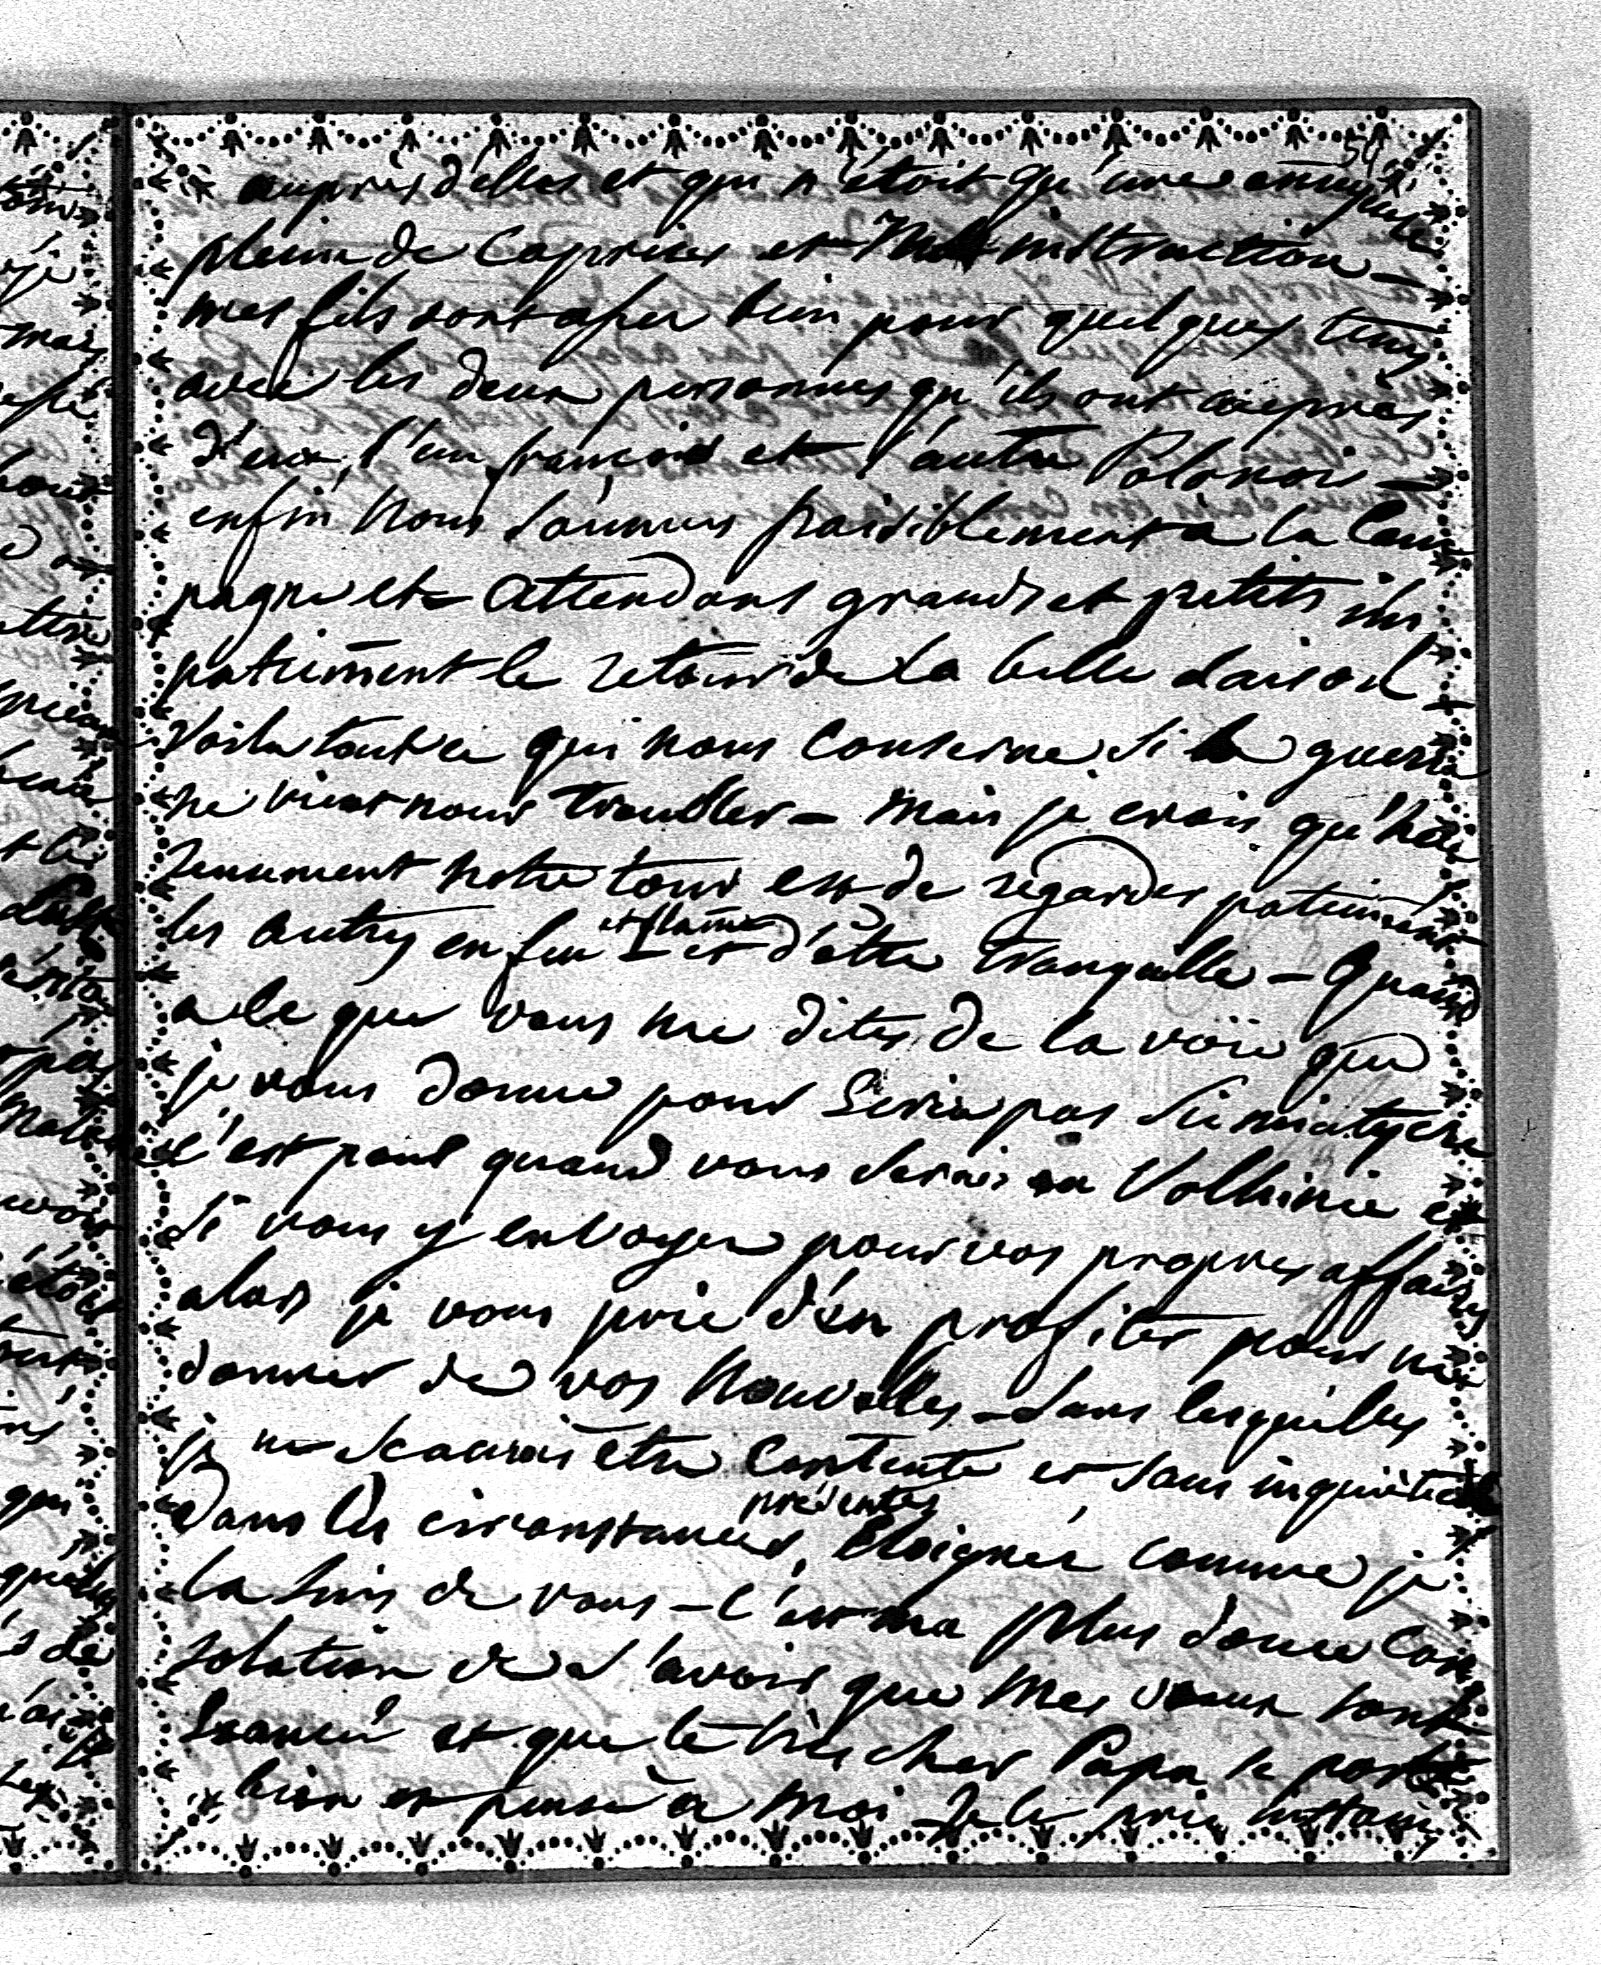 59
auprès d'elles et qui n'étoit qu'une ennuyante
pleine de caprices et instruction —
mes fils sont assez bien pour quelques tems
avec les deux personnes qu'ils ont auprès
d'eux, l'un françois et l'autre Polonois —
enfin nous sommes paisiblement a la Cam
pagne et attendons grands et petits im
patiement le retour de la belle saison —
Voila tout ce qui nous conserne si la guerre
ne vient nous troubler — mais je crois qu'heu
reusement notre tour est de regarder patiement
les autres en feu et flame — et d'être tranquille — Quand
a ce que vous me dites de la voie que
je vous donne pour ecrire par Siemiatycze
c'est pour quand vous serais en Volhinie et
si vous y envoyer pour vos propres affaires
alors je vous prie d'en profiter pour me
donner de vos nouvelles — sans lesquelles
je ne scaurois être contente et sans inquiètude
dans les circonstances présentes, éloignée comme je
la suis de vous — c'est ma plus douce con
solation de s'avoir que mes vœux sont
exaucé et que le très cher Papa se porte
bien et pense à moi — je le prie instam